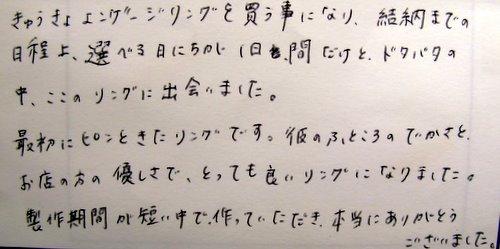 きゅうきょエンゲージリングを買う事になり、結納までの
日程上、選べる日にちが1日間だけと、ドタバタの
中、ここのリングに出会いました。
最初にピンときたリングです。彼のふところのでかさと、
お店の方の優しさで、とっても良いリングになりました。
製作期間が短い中で、作っていただき、本当にありがとう
ございました。